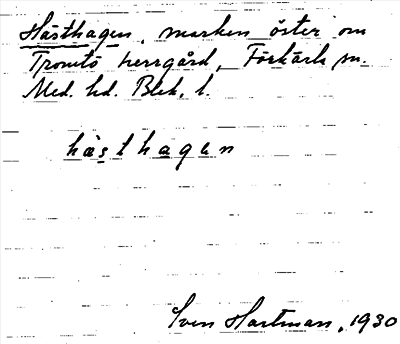 Hästhagen, marken öster om
Tromtö herrgård, Förkärla sn.
Med. hd. Blek. l.
hästhagen
Sven Hartman, 1930